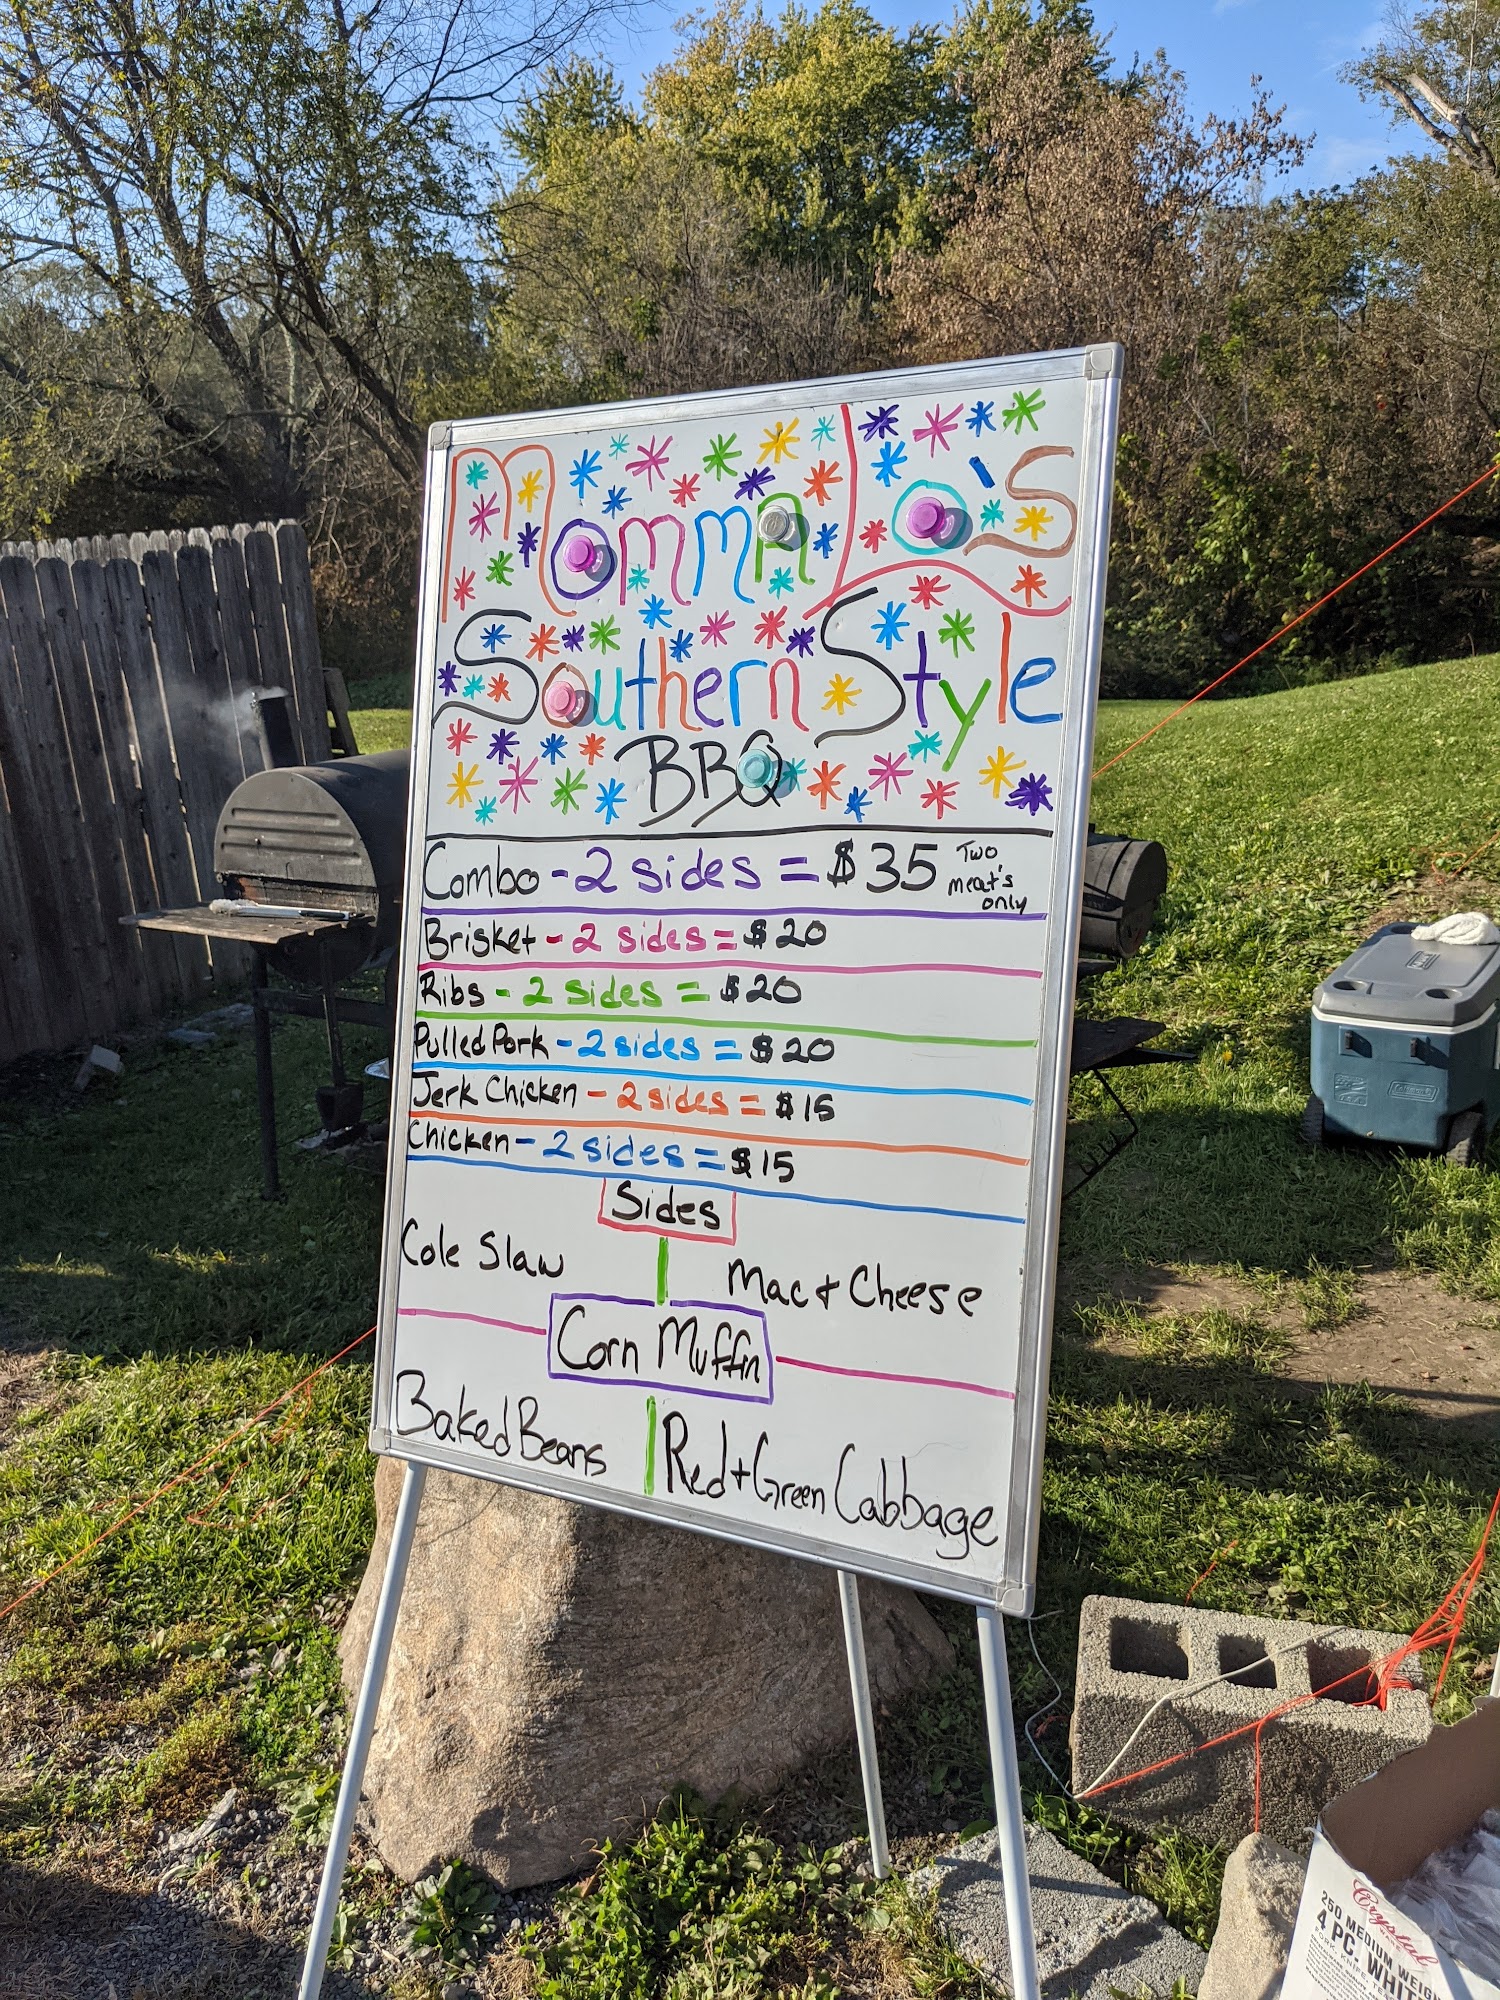 Momma Jo's
Southern Style
BBQ
Combo - 2 sides = $35 Two meat's only
Brisket - 2 sides = $20
Ribs - 2 sides = $20
Pulled Pork - 2 sides = $20
Jerk Chicken - 2 sides = $15
Chicken - 2 sides = $15
Sides
Cole Slaw
Mac + Cheese
Corn Muffin
Baked Beans
Red + Green Cabbage
Coleman
Crystal
250 MEDIUM WEIGH
4 PC. WHIT